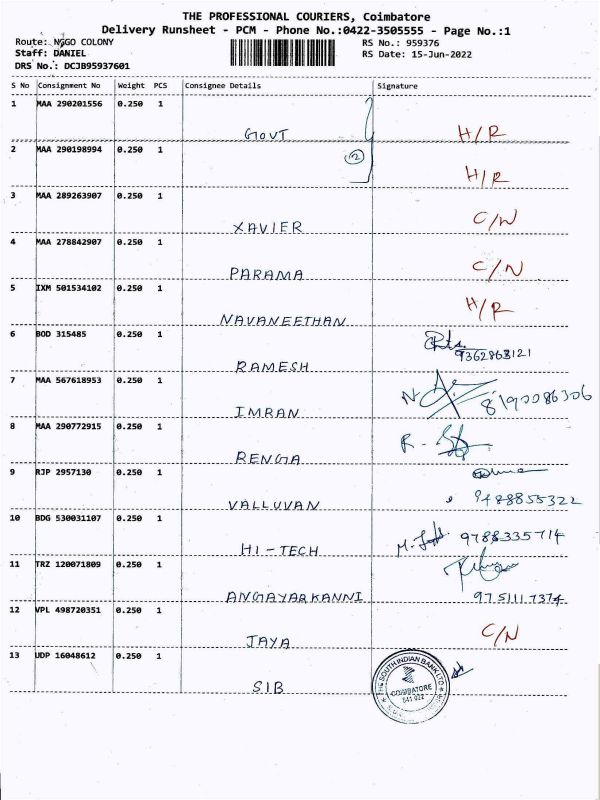 THE PROFESSIONAL COURIERS, Coimbatore
Delivery Runsheet - PCM - Phone No.:0422-3505555 - Page No.:1
Route: NGGO COLONY RS No.: 959376
Staff: DANIEL RS Date: 15-Jun-2022
DRS No.: DCJB95937601
S No Consignment No Weight PCS Consignee Details Signature
1 MAA 290201556 0.250 1
GOVT H/R
2 MAA 290198994 0.250 1 2
H/R
3 MAA 289263907 0.250 1
XAVIER C/N
4 MAA 278842907 0.250 1
PARAMA C/N
5 IXM 501534102 0.250 1
NAVANEETHAN H/R
6 BOD 315485 0.250 1
9362863121
RAMESH
7 MAA 567618953 0.250 1
IMRAN 8190086306
8 MAA 290772915 0.250 1
RENGA
9 RJP 2957130 0.250 1
VALLUVAN 9488855322
10 BDG 530031107 0.250 1
HI-TECH 9788335714
11 TRZ 120071809 0.250 1
ANGAYARKANNI 9751117374
12 VPL 498720351 0.250 1
JAYA C/N
13 UDP 16048612 0.250 1
SIB
THE SOUTH INDIAN BANK LTD
COIMBATORE
641 022